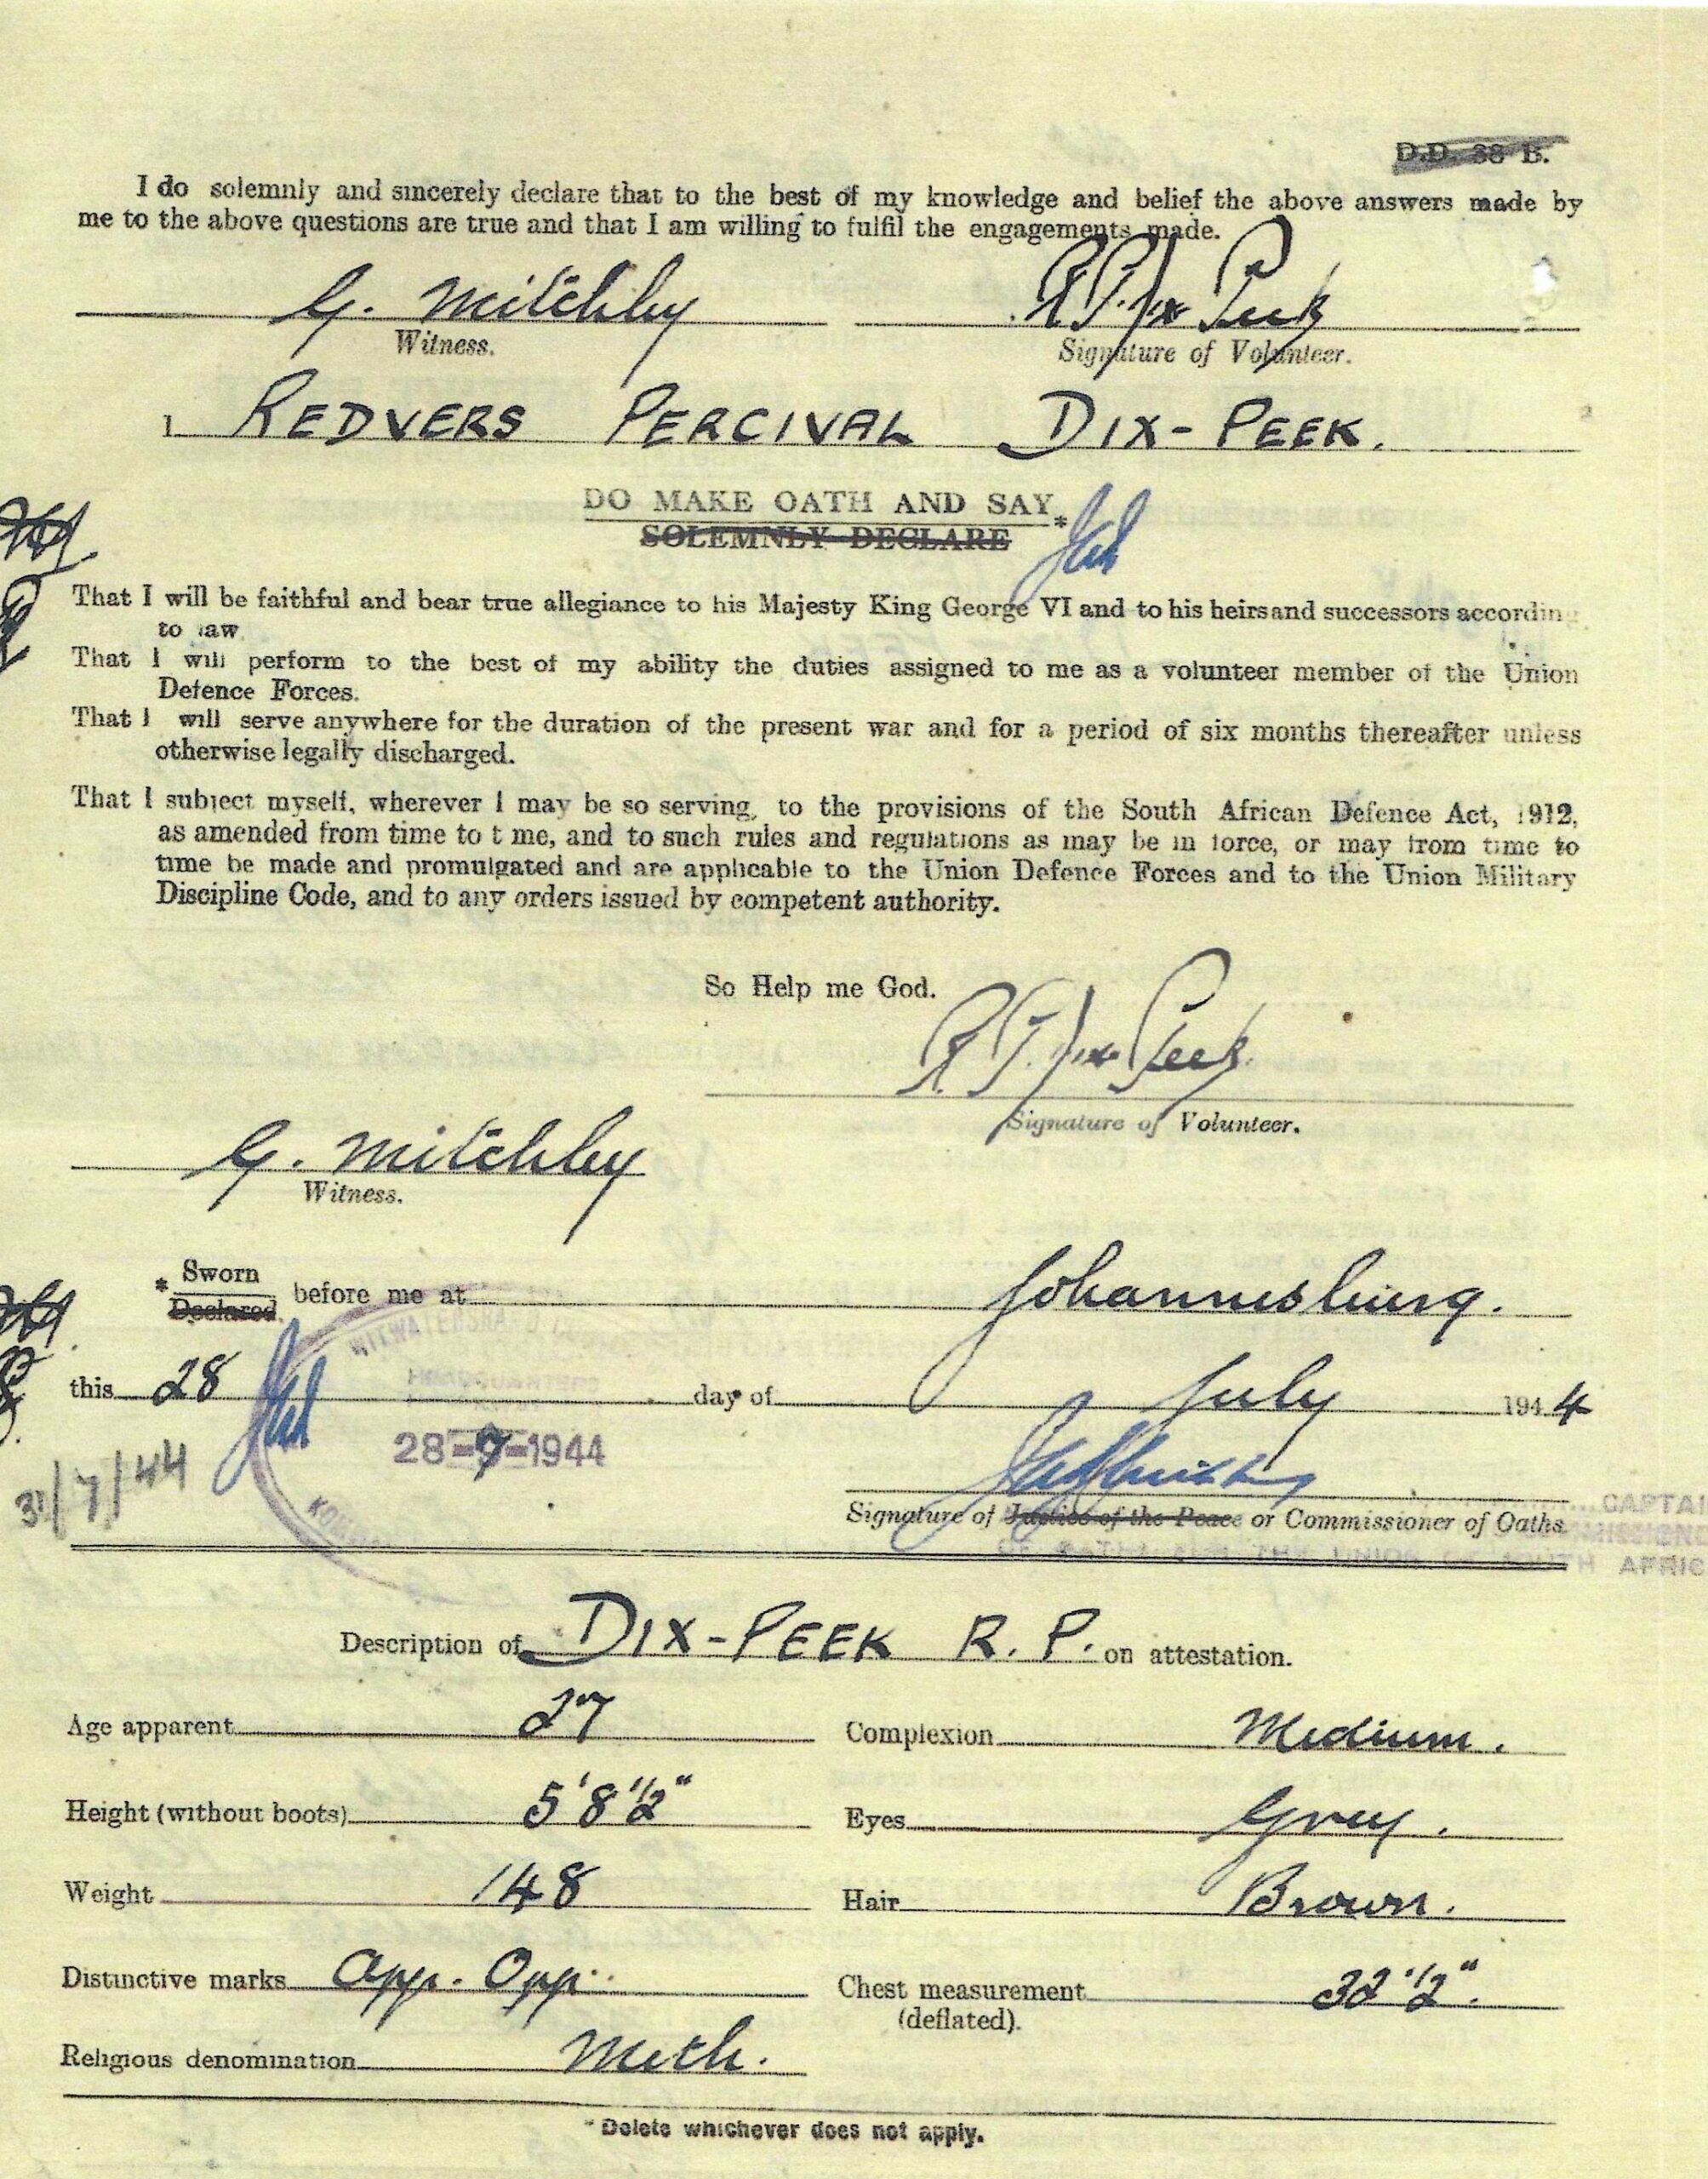 D.D. 38 B.
I do solemnly and sincerely declare that to the best of my knowledge and belief the above answers made by
me to the above questions are true and that I am willing to fulfil the engagements made.
G. Mitchley R.P. Dix Peek
Witness. Signature of Volunteer.
I REDVERS PERCIVAL DIX-PEEK.
DO MAKE OATH AND SAY *
SOLEMNLY DECLARE
That I will be faithful and bear true allegiance to his Majesty King George VI and to his heirs and successors accordin
to law
That I will perform to the best of my ability the duties assigned to me as a volunteer member of the Union
Defence Forces.
That I will serve anywhere for the duration of the present war and for a period of six months thereafter unless
otherwise legally discharged.
That I subject myself, wherever I may be so serving, to the provisions of the South African Defence Act, 1912,
as amended from time to t me, and to such rules and regulations as may be in force, or may from time to
time be made and promulgated and are applicable to the Union Defence Forces and to the Union Military
Discipline Code, and to any orders issued by competent authority.
So Help me God.
R.P. Dix Peek
Signature of Volunteer.
G. Mitchley
Witness.
* Sworn
Declared before me at Johannesburg.
WITWATERSRAND
HEADQUARTERS
this 28 day of July 1944
28-7-1944
31/7/44
Signature of Justice of the Peace or Commissioner of Oaths
CAPTAI
MISSIONE
THE UNION OF SOUTH AFRIC
Description of DIX-PEEK R. P. on attestation.
Age apparent 27 Complexion Medium.
Height (without boots) 5'8½" Eyes Grey.
Weight 148 Hair Brown.
Distinctive marks App. Opp. Chest measurement 32½".
(deflated).
Religious denomination Meth.
* Delete whichever does not apply.